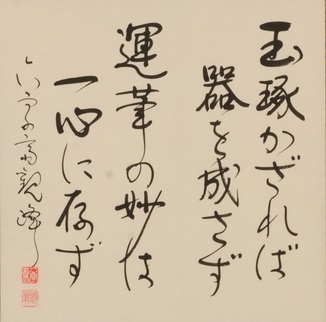 玉琢かざれば
器を成さず
運筆の妙は
一心に存ず